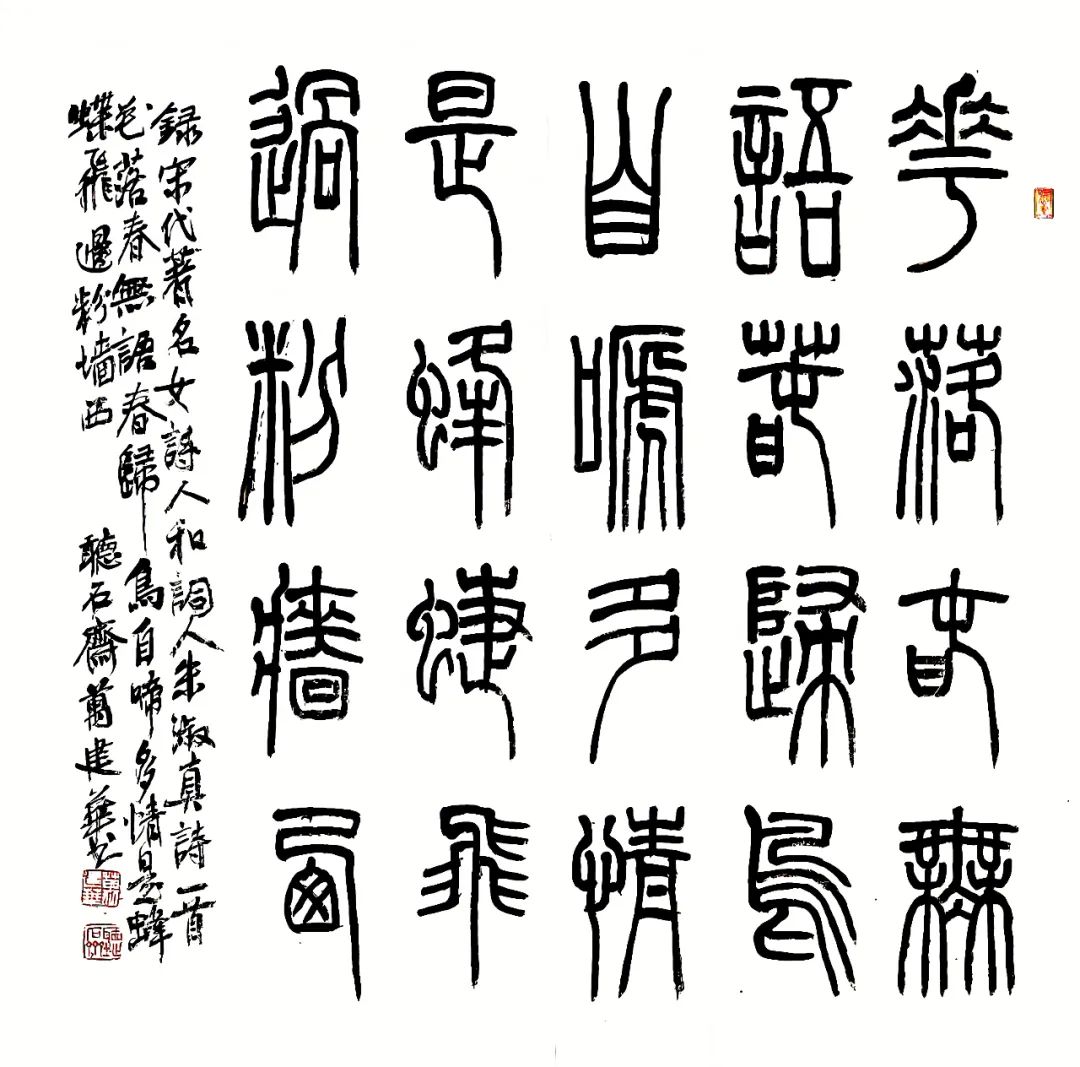 華落春無
語春歸鳥
自嗁多情
是蜂蜨飛
過粉牆西
録宋代著名女詩人和詞人朱淑真詩一首
花落春無語春歸鳥自啼多情是蜂
蝶飛過粉墻西 聽石齋萬建華書